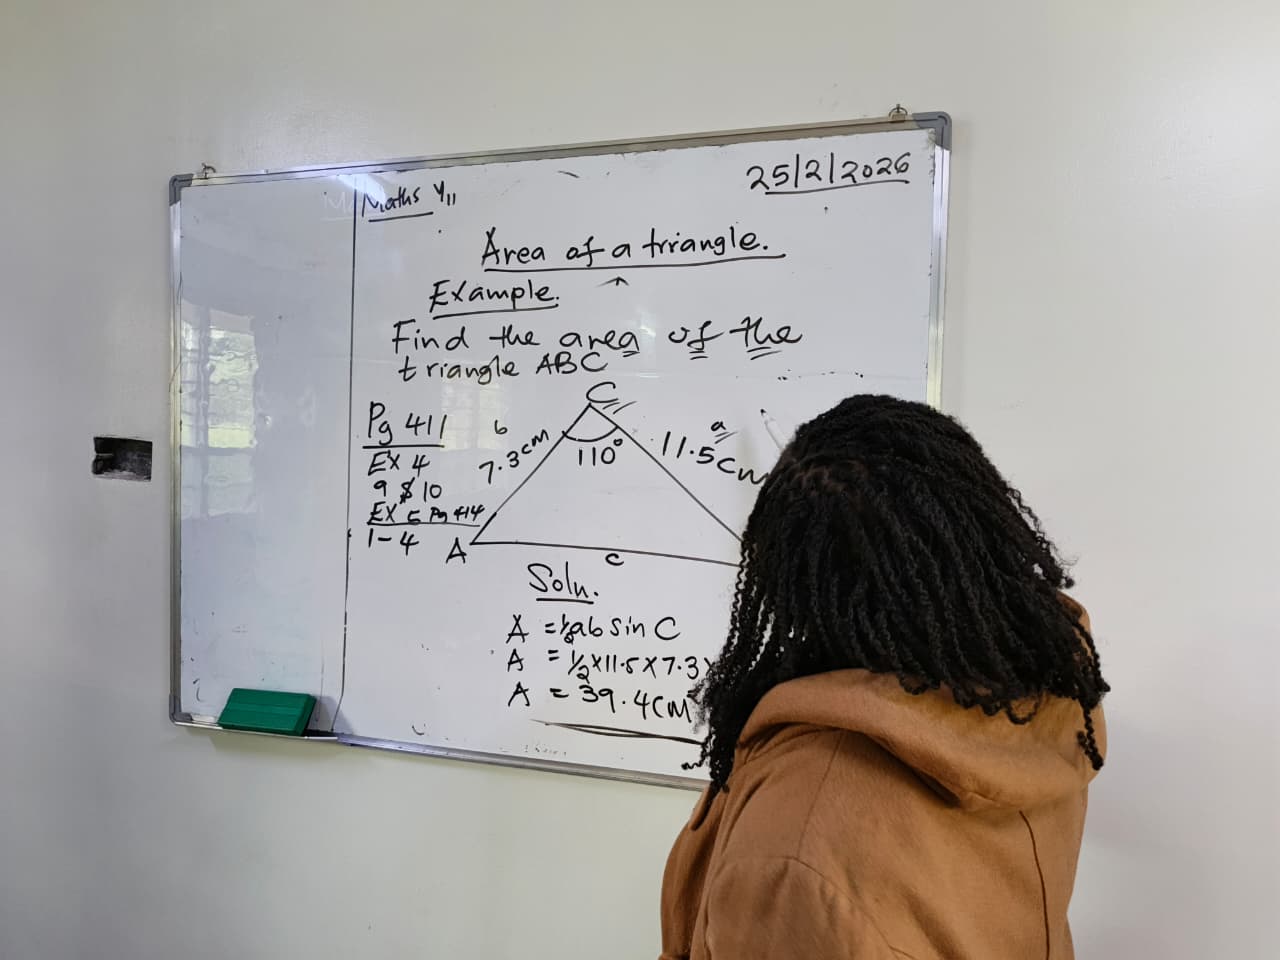 Maths Y11
25/2/2026
Area of a triangle.
Example.
Find the area of the
triangle ABC
C
Pg 411
EX 4
9 & 10
EX 5 Pg 414
1-4
b
7.3cm
110°
a
11.5cm
A
c
Soln.
A = ½ab sin C
A = ½×11.5×7.3×
A = 39.4cm